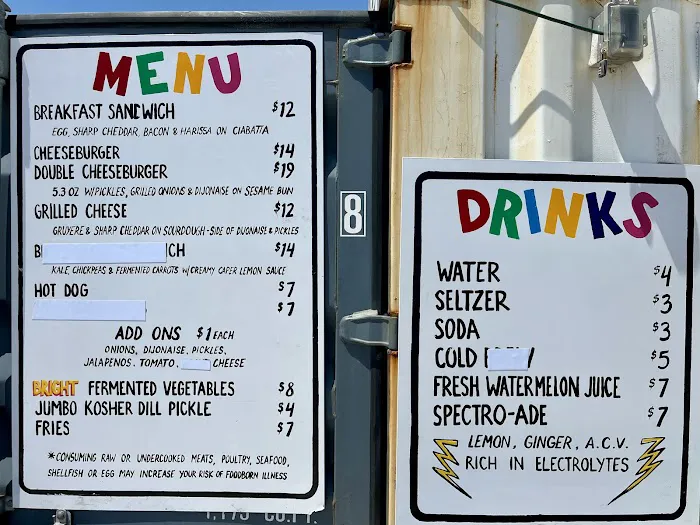 MENU
BREAKFAST SANDWICH $12
EGG, SHARP CHEDDAR, BACON & HARISSA ON CIABATTA
CHEESEBURGER $14
DOUBLE CHEESEBURGER $19
5.3 OZ W/PICKLES, GRILLED ONIONS & DIJONAISE ON SESAME BUN
GRILLED CHEESE $12
GRUYERE & SHARP CHEDDAR ON SOURDOUGH-SIDE OF DIJONAISE & PICKLES
$14
KALE, CHICKPEAS & FERMENTED CARROTS W/CREAMY CAPER LEMON SAUCE
HOT DOG $7
$7
ADD ONS $1 EACH
ONIONS, DIJONAISE, PICKLES,
JALAPENOS, TOMATO, CHEESE
BRIGHT FERMENTED VEGETABLES $8
JUMBO KOSHER DILL PICKLE $4
FRIES $7
*CONSUMING RAW OR UNDERCOOKED MEATS, POULTRY, SEAFOOD,
SHELLFISH OR EGG MAY INCREASE YOUR RISK OF FOODBORN ILLNESS
8
DRINKS
WATER $4
SELTZER $3
SODA $3
COLD $5
FRESH WATERMELON JUICE $7
SPECTRO-ADE $7
LEMON, GINGER, A.C.V.
RICH IN ELECTROLYTES